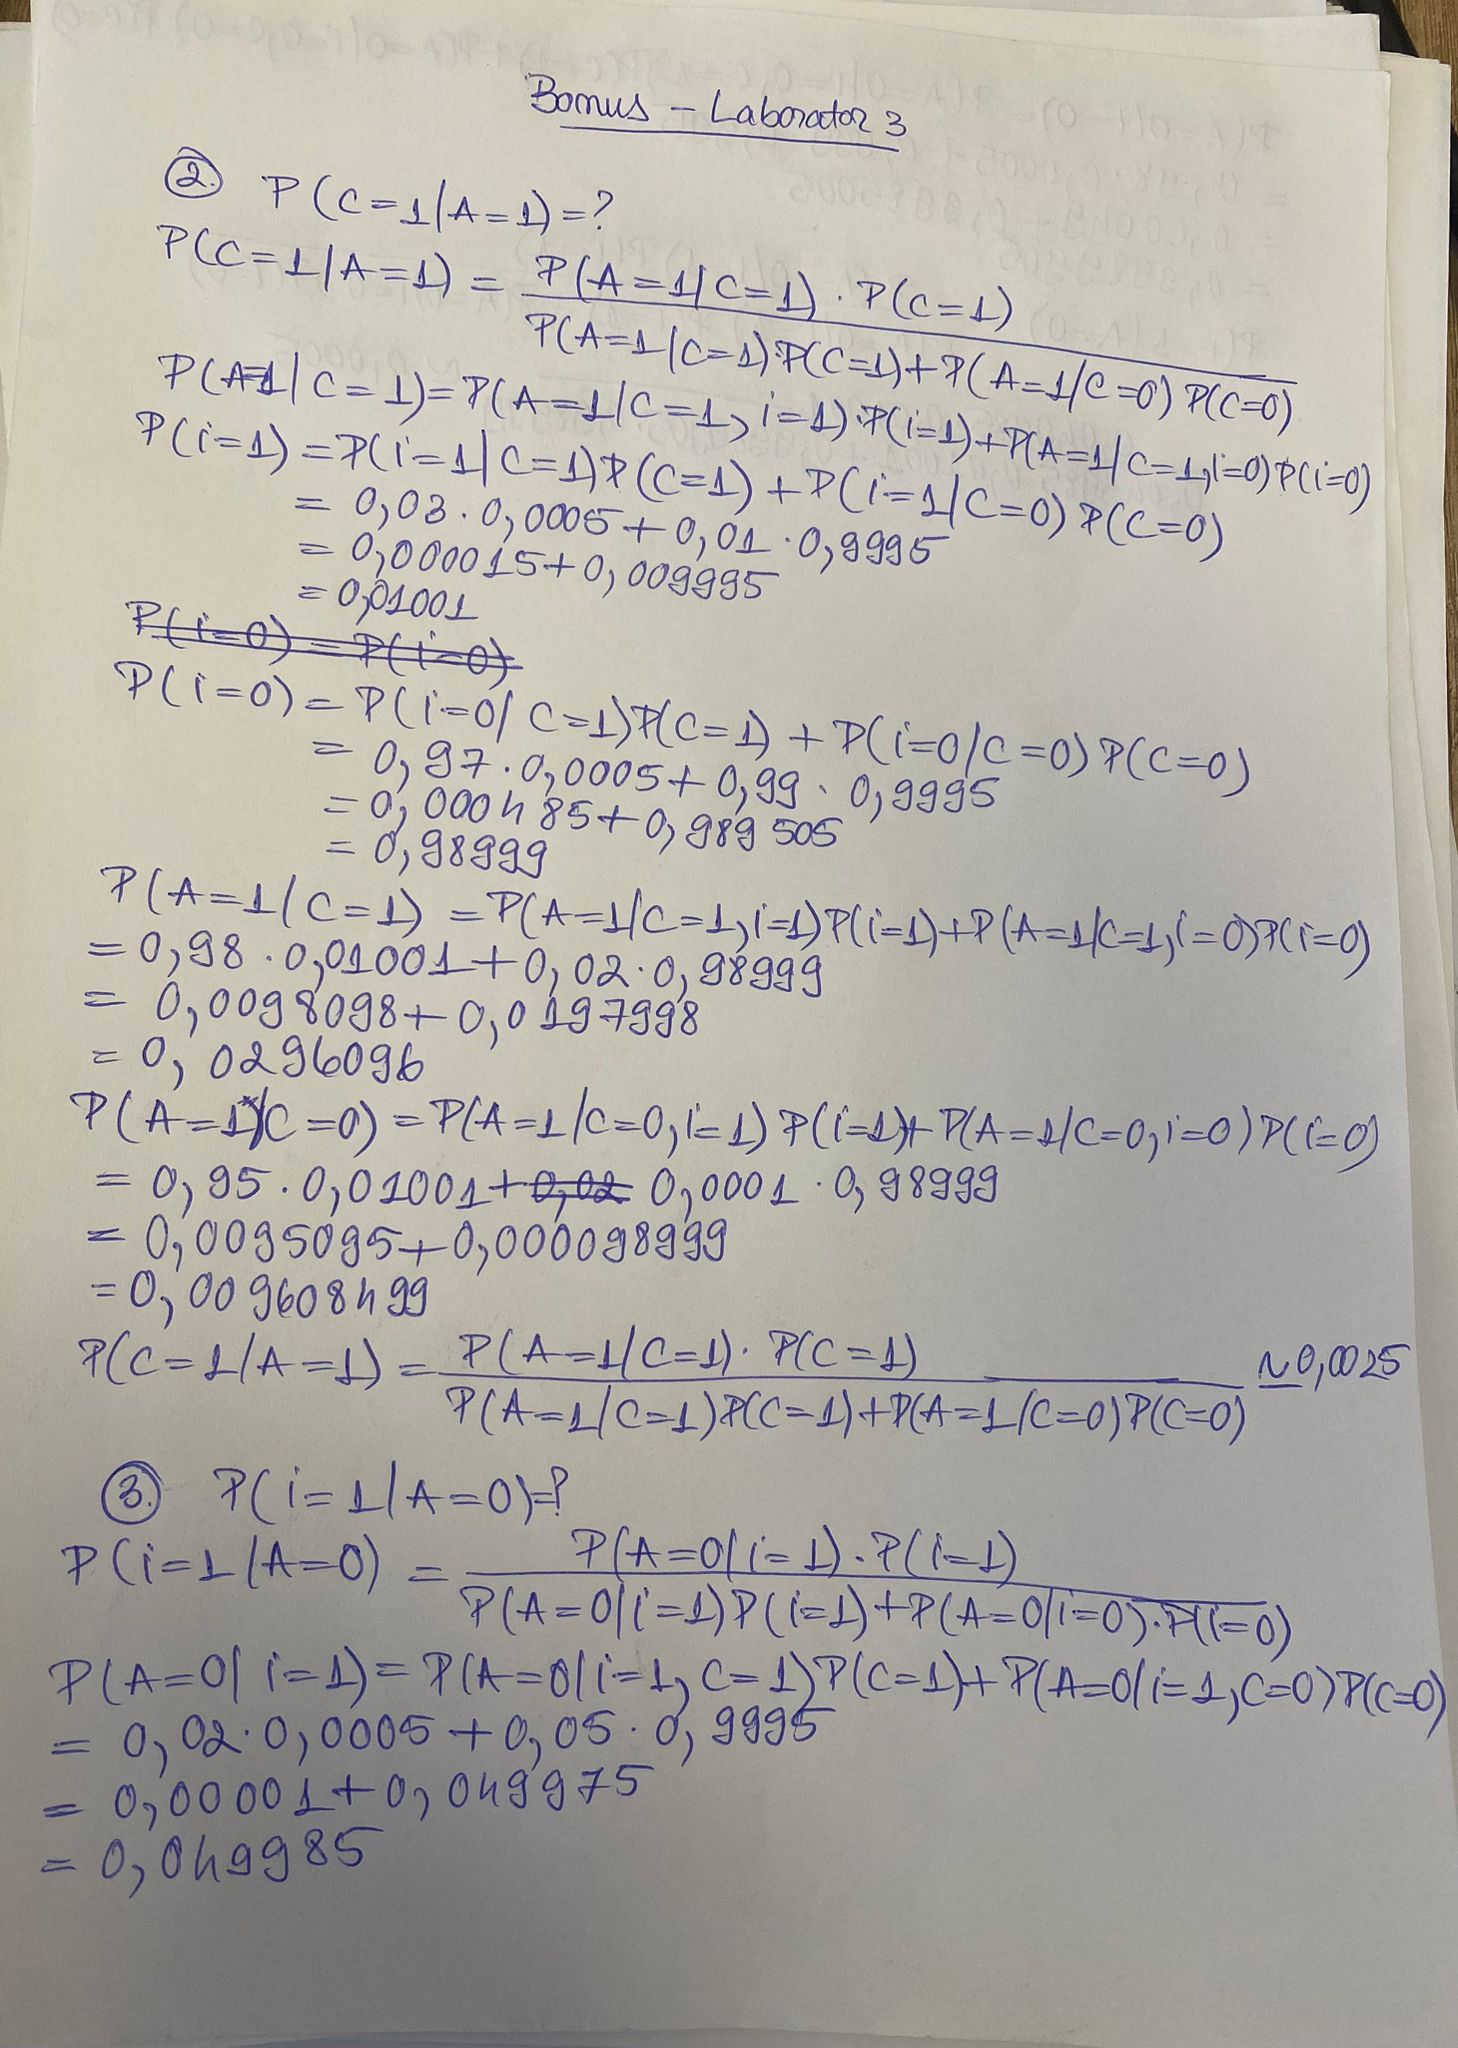 Bonus - Laborator 3
2. P(C=1/A=1)=?
P(C=1/A=1) = P(A=1/C=1) · P(C=1)
P(A=1/C=1)·P(C=1)+P(A=1/C=0) P(C=0)
P(A=1/C=1)=P(A=1/C=1, i=1)·P(i=1)+P(A=1/C=1,i=0)P(i=0)
P(i=1) =P(i=1/C=1)P(C=1) + P(i=1/C=0) P(C=0)
= 0,03·0,0005+0,01·0,9995
= 0,000015+0,009995
= 0,01001
P(i=0) = P(i=0)
P(i=0) = P(i=0/C=1)P(C=1) + P(i=0/C=0) P(C=0)
= 0,97·0,0005+0,99·0,9995
= 0,000485+0,989505
= 0,98999
P(A=1/C=1) =P(A=1/C=1,i=1)P(i=1)+P(A=1/C=1,i=0)P(i=0)
= 0,98·0,01001+0,02·0,98999
= 0,0098098+0,0197998
= 0,0296096
P(A=1/C=0) = P(A=1/C=0,i=1) P(i=1)+P(A=1/C=0,i=0)P(i=0)
= 0,95·0,01001+0,02 0,0001·0,98999
= 0,0095095+0,000098999
=0,009608499
P(C=1/A=1) = P(A=1/C=1)· P(C=1) ≃0,0025
P(A=1/C=1)P(C=1)+P(A=1/C=0)P(C=0)
3. P(i=1/A=0)=?
P(i=1/A=0) = P(A=0/i=1)·P(i=1)
P(A=0/i=1)P(i=1)+P(A=0/i=0)·P(i=0)
P(A=0/i=1)= P(A=0/i=1,C=1)P(C=1)+P(A=0/i=1,C=0)P(C=0)
= 0,02·0,0005+0,05·0,9995
= 0,00001+0,049975
= 0,049985